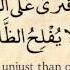 فترى على ال
لا يفلح الظ
unjust than o